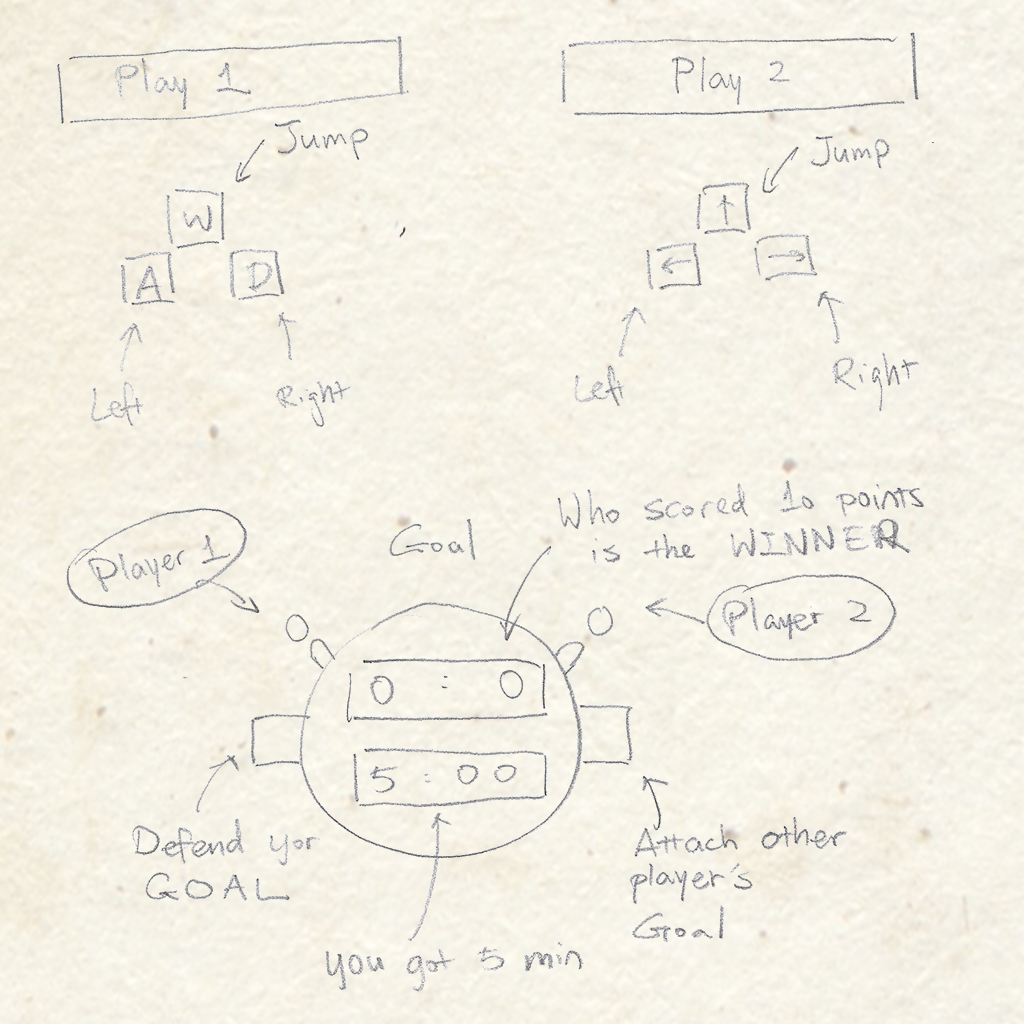 Play 1
Play 2
Jump
Jump
W
↑
A
D
←
→
Left
Right
Left
Right
Who scored 10 points
is the WINNER
Goal
Player 1
Player 2
0 : 0
5 : 00
Defend yor
GOAL
Attach other
player's
Goal
you got 5 min